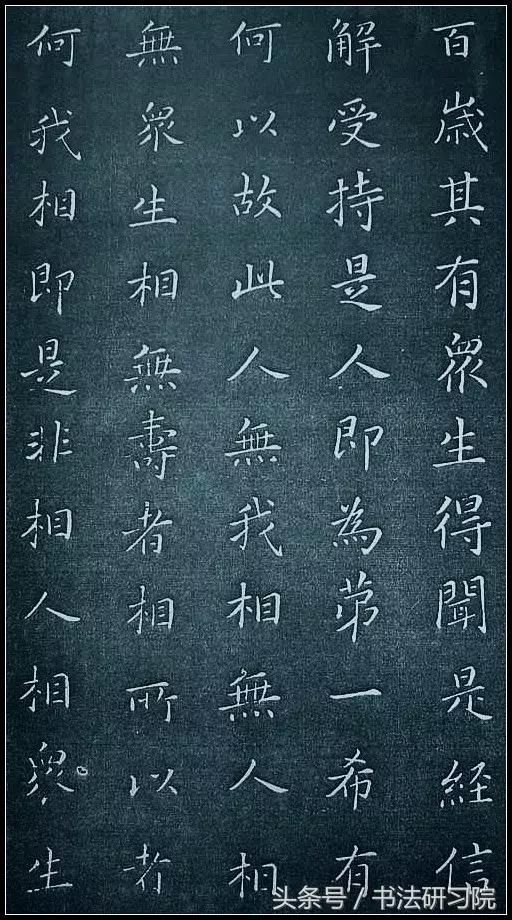 百歲其有眾生得聞是經信
解受持是人即為苐一希有
何以故此人無我相無人相
無眾生相無壽者相所以者
何我相即是非相人相眾生
头条号 / 书法研习院